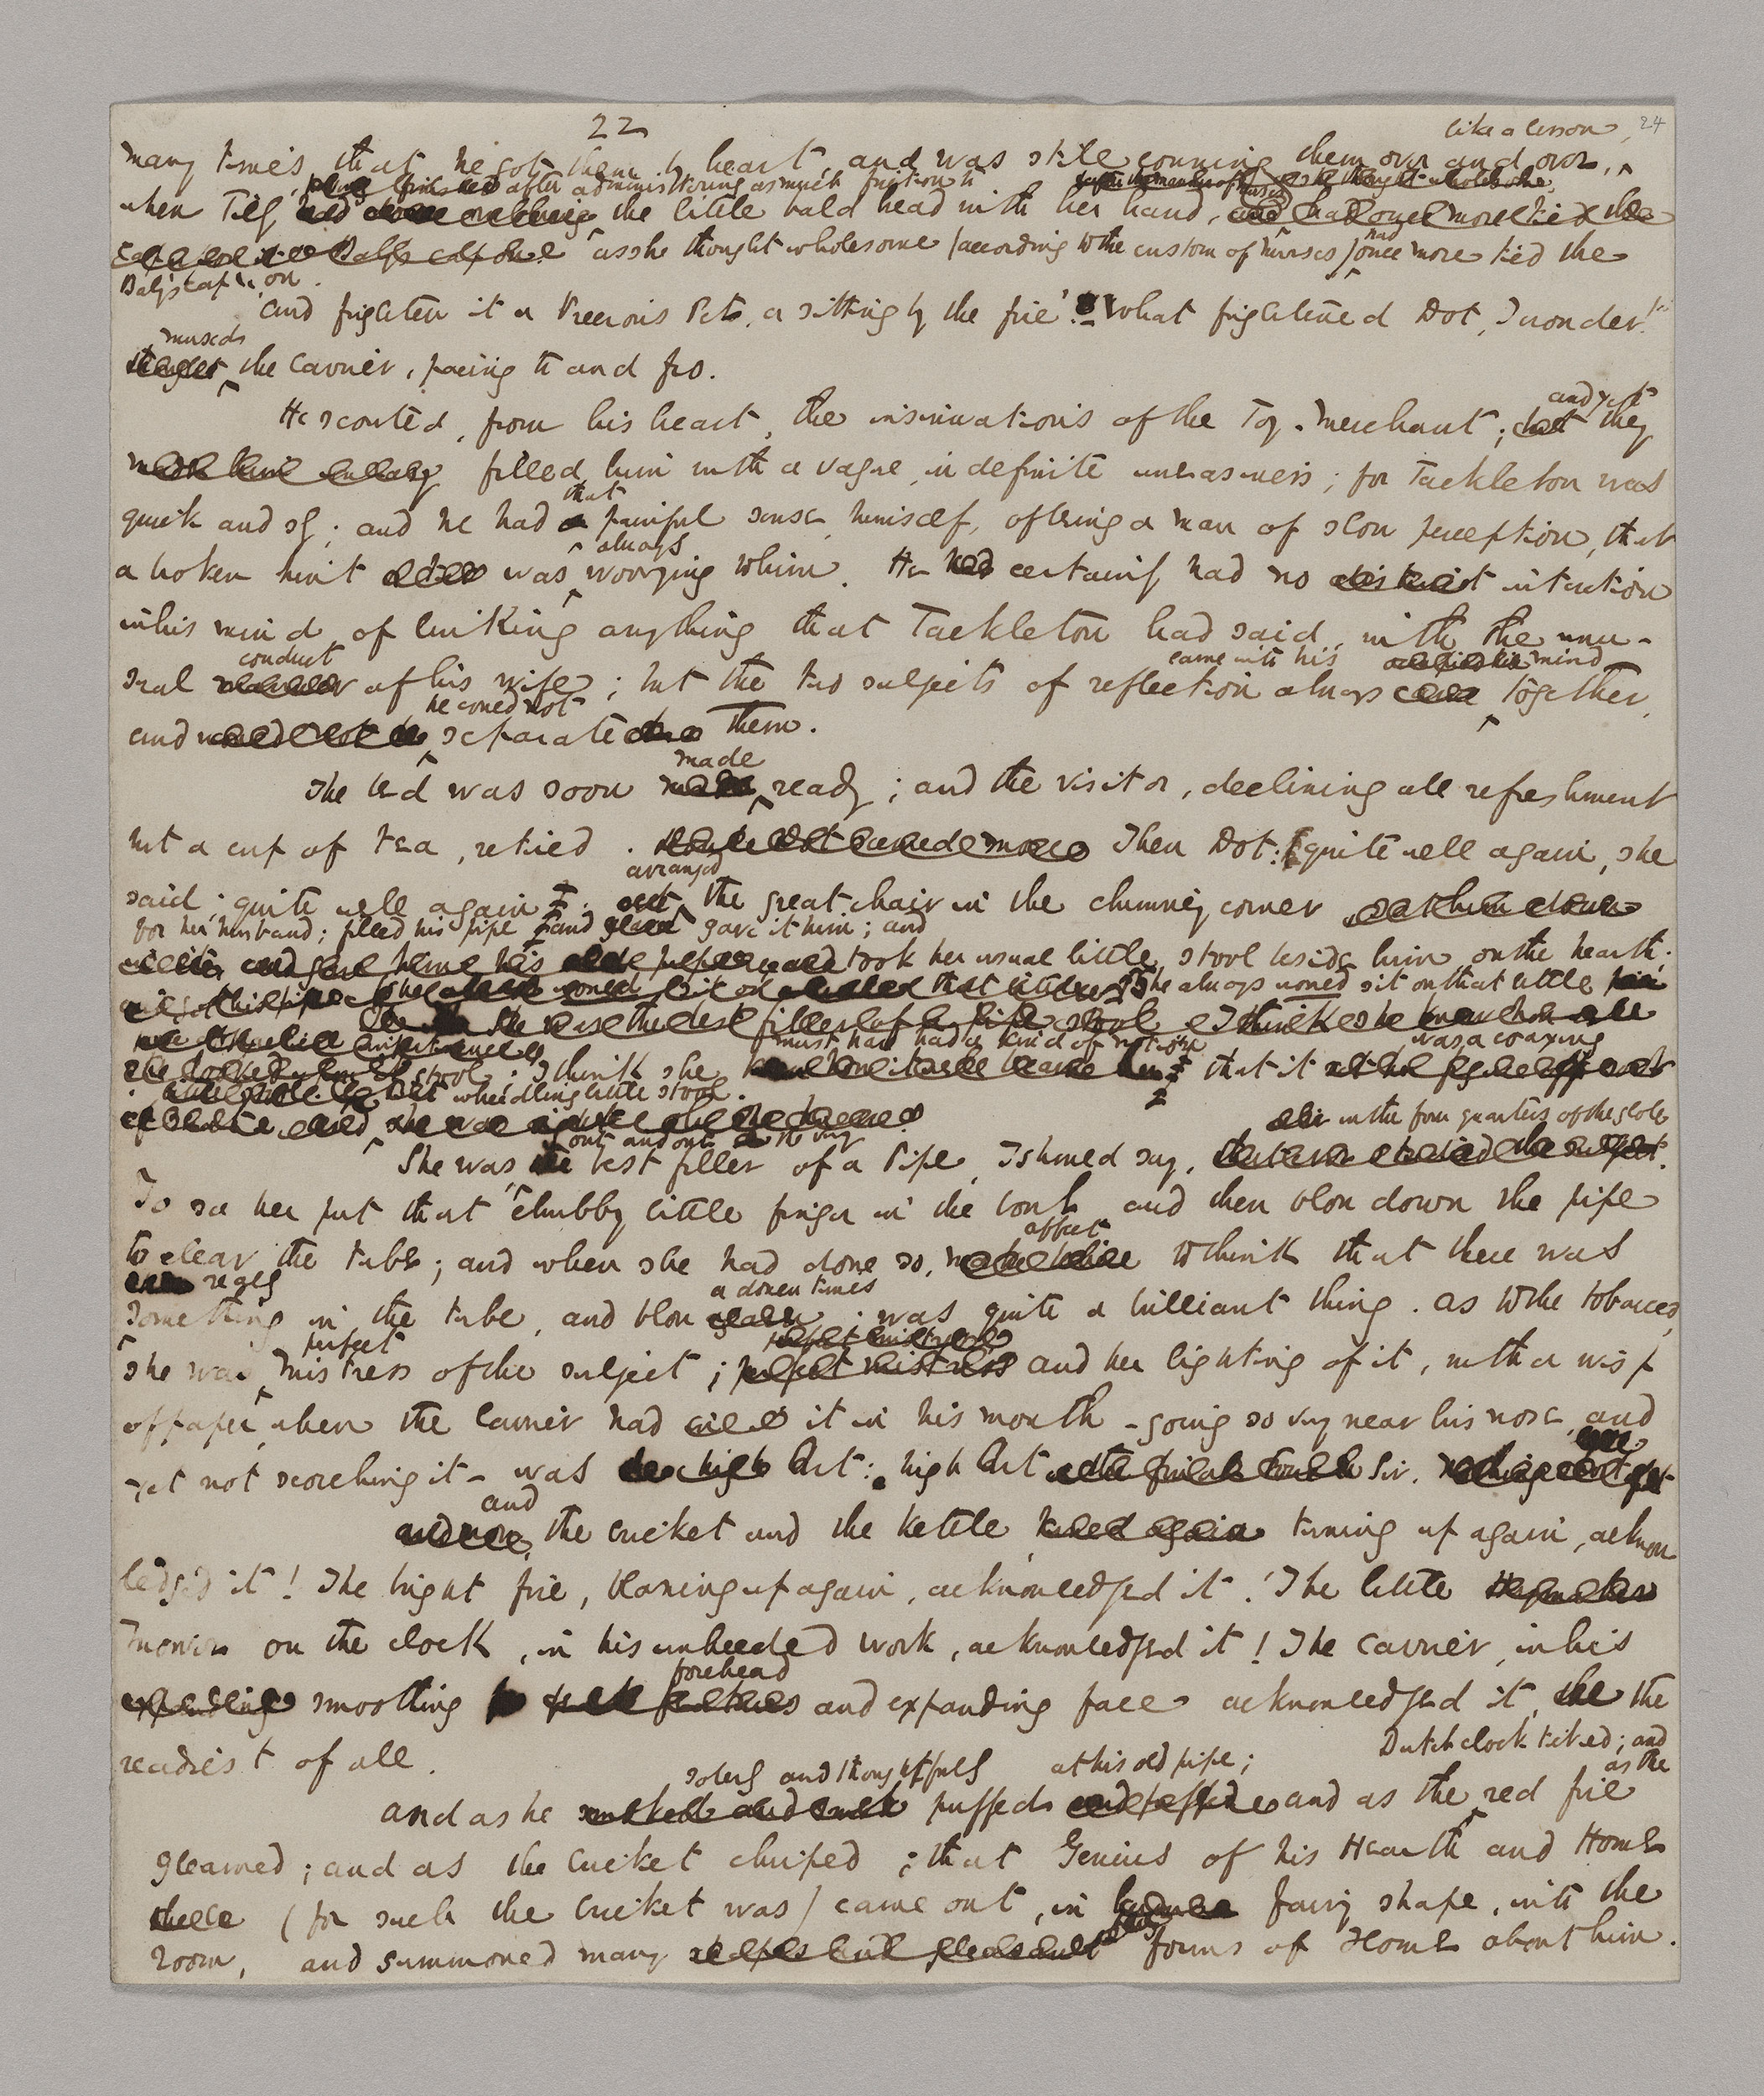 22
like a lesson, 24
many times, that he got them by heart, and was still conning them over and over,
after administering as much friction to
when Tilly the little bald head with her hand,
as she thought wholesome (according to the custom of nurses) had once more tied the
Baby's cap on.
"And frighten it a Precious Pets, a sitting by the fire!" "What frightened Dot, I wonder!"
mused
the Carrier, pacing to and fro.
and yet
He scouted, from his heart, the insinuations of the Toy-merchant; they
filled him with a vague, indefinite uneasiness; for Tackleton was
that
quick and sly; and he had a painful sense, himself, of being a man of slow perception, that
always
a broken hint was worrying to him. He certainly had no intention
in his mind of linking anything that Tackleton had said, with the unu-
conduct came into his mind
sual of his wife; but the two subjects of reflection always together,
he could not
and separate them.
made
The bed was soon ready; and the visitor, declining all refreshment
but a cup of tea, retired. Then Dot: quite well again, she
arranged
said: quite well again: the great chair in the chimney corner
for her husband; filled his pipe and gave it him; and
took her usual little stool beside him on the hearth.
She always would sit on that little
must have had a kind of notion was a coaxing
stool. I think she that it
wheedling little stool.
in the four quarters of the globe
out and out the very
She was, the best filler of a Pipe, I should say,
To see her put that chubby little finger in the bowl, and then blow down the pipe
affect
to clear the tube; and when she had done so, to think that there was
really a dozen times
something in the tube, and blow; was quite a brilliant thing. As to the tobacco,
perfect
she was mistress of the subject; and her lighting of it, with a wisp
of paper, when the Carrier had it in his mouth - going so very near his nose, and
yet not scorching it - was Art: high Art Sir.
and
the cricket and the kettle, tuning up again, acknow
ledged it! The bright fire, blazing up again, acknowledged it! The little
mower on the clock, in his unheeded work, acknowledged it! The Carrier, in his
forehead
smoothing and expanding face acknowledged it, the
readiest of all.
Dutch clock ticked; and
soberly and thoughtfully at his old pipe; as the
And as he puffed and as the red fire
gleamed; and as the Cricket chirped; that Genius of his Hearth and Home
(for such the Cricket was) came out, in fairy shape, into the
room, and summoned many forms of Home about him.